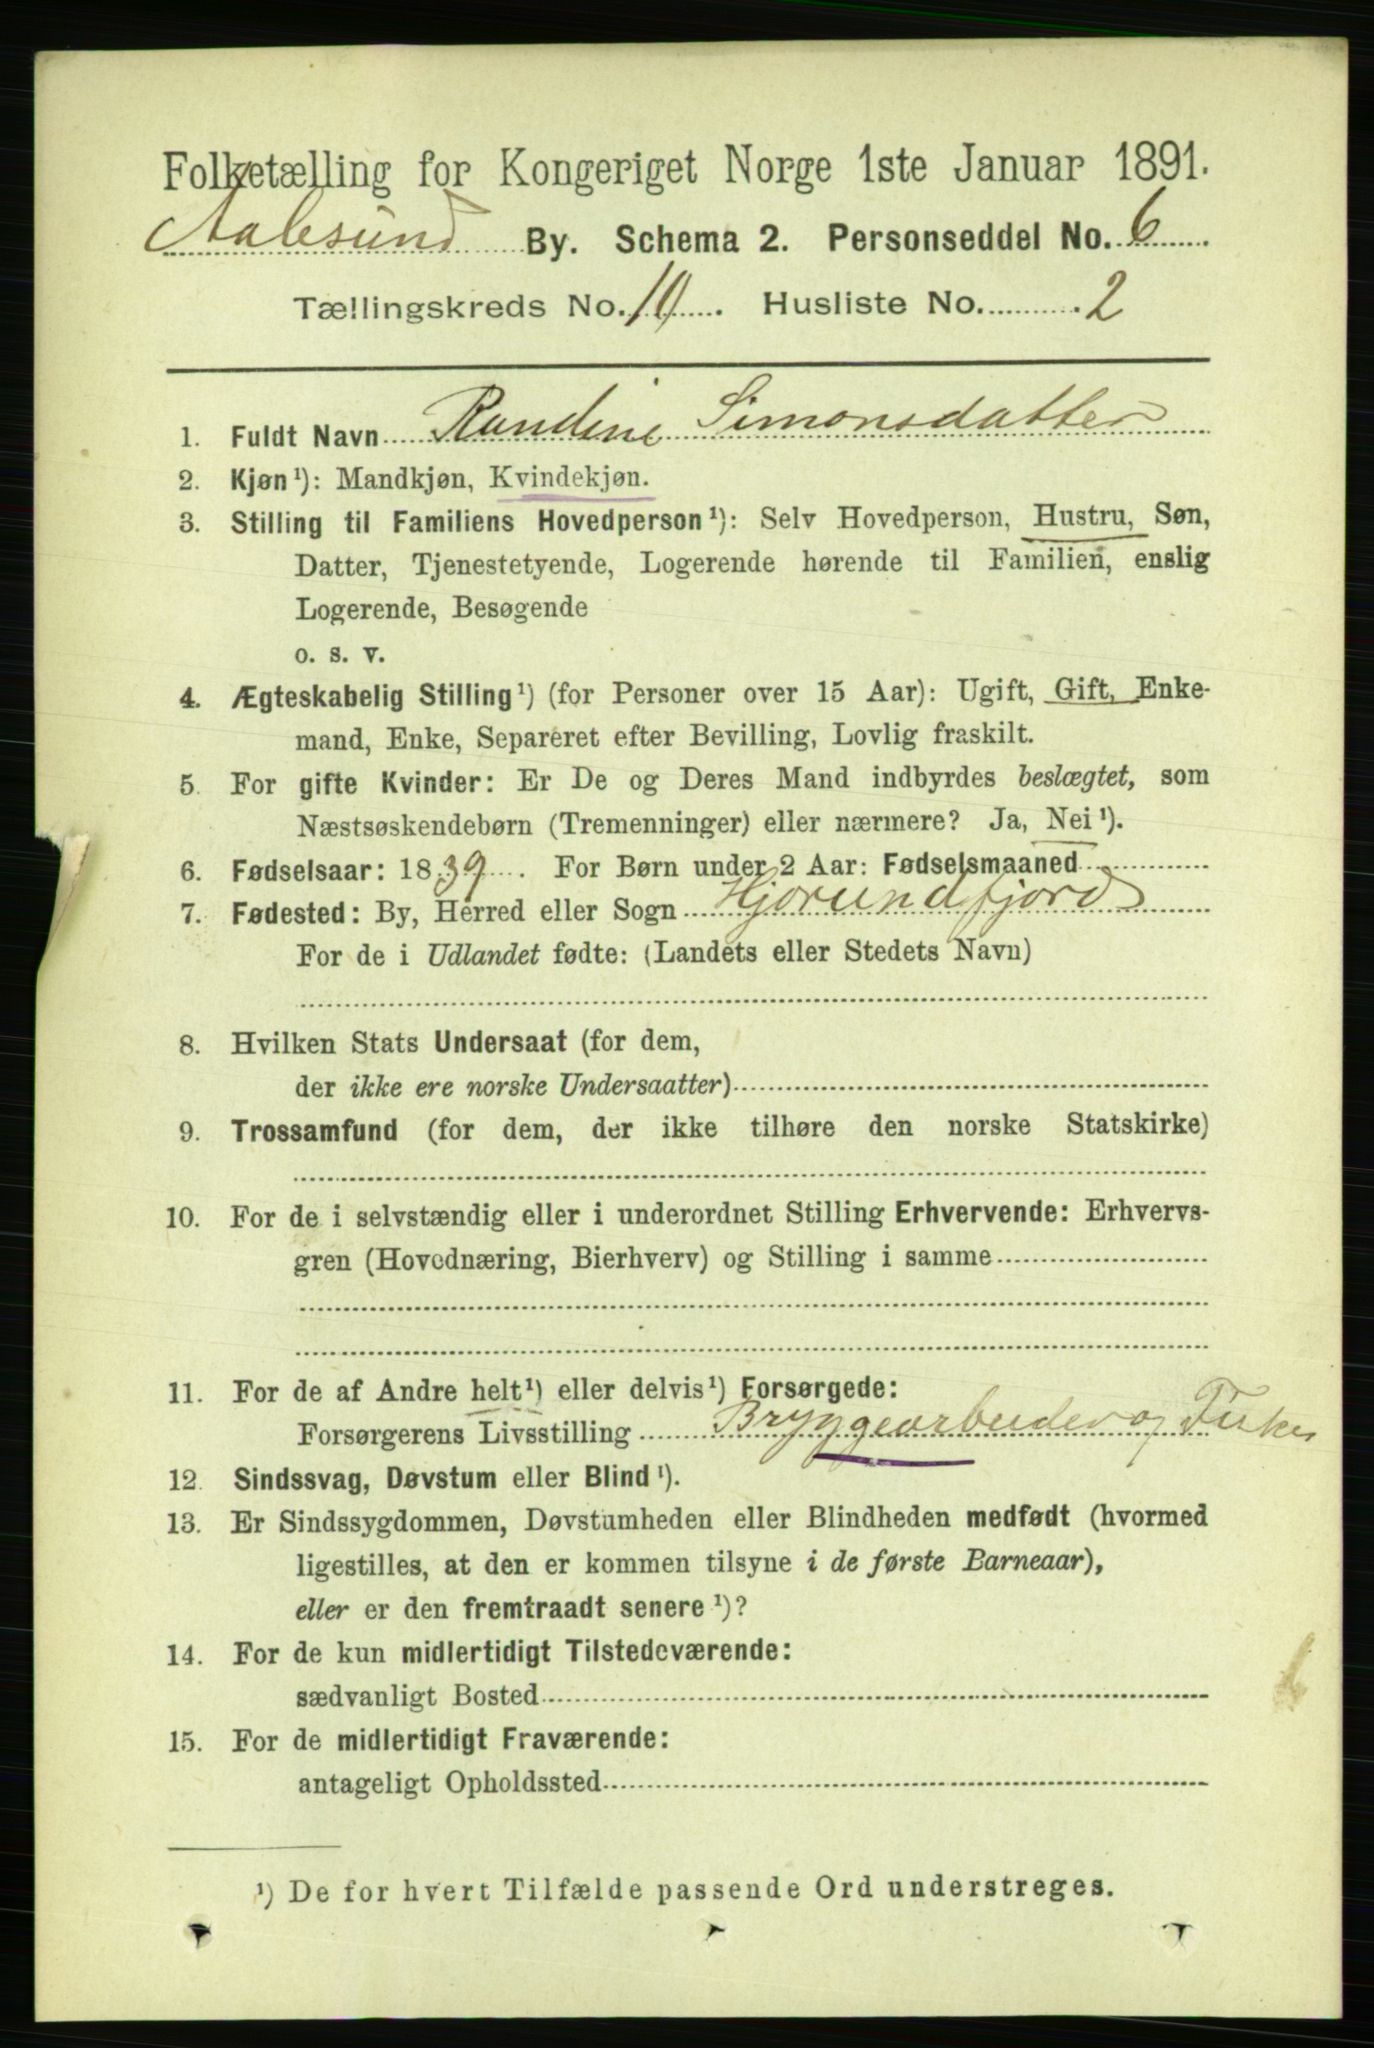 Folketælling for Kongeriget Norge 1ste Januar 1891.
Aalesund By. Schema 2. Personseddel No. 6
Tællingskreds No. 10. Husliste No. 2
1. Fuldt Navn Randine Simonsdatter
2. Kjøn ¹): Mandkjøn, Kvindekjøn.
3. Stilling til Familiens Hovedperson ¹): Selv Hovedperson, Hustru, Søn,
Datter, Tjenestetyende, Logerende hørende til Familien, enslig
Logerende, Besøgende
o. s. v.
4. Ægteskabelig Stilling ¹) (for Personer over 15 Aar): Ugift, Gift, Enke-
mand, Enke, Separeret efter Bevilling, Lovlig fraskilt.
5. For gifte Kvinder: Er De og Deres Mand indbyrdes beslægtet, som
Næstsøskendebørn (Tremenninger) eller nærmere? Ja, Nei ¹).
6. Fødselsaar: 1839. For Børn under 2 Aar: Fødselsmaaned
7. Fødested: By, Herred eller Sogn Hjorundfjord
For de i Udlandet fødte: (Landets eller Stedets Navn)
8. Hvilken Stats Undersaat (for dem,
der ikke ere norske Undersaatter)
9. Trossamfund (for dem, der ikke tilhøre den norske Statskirke)
10. For de i selvstændig eller i underordnet Stilling Erhvervende: Erhvervs-
gren (Hovednæring, Bierhverv) og Stilling i samme
11. For de af Andre helt ¹) eller delvis ¹) Forsørgede:
Forsørgerens Livsstilling Bryggearbeider og Fisker
12. Sindssvag, Døvstum eller Blind ¹).
13. Er Sindssygdommen, Døvstumheden eller Blindheden medfødt (hvormed
ligestilles, at den er kommen tilsyne i de første Barneaar),
eller er den fremtraadt senere ¹)?
14. For de kun midlertidigt Tilstedeværende:
sædvanligt Bosted
15. For de midlertidigt Fraværende:
antageligt Opholdssted
¹) De for hvert Tilfælde passende Ord understreges.